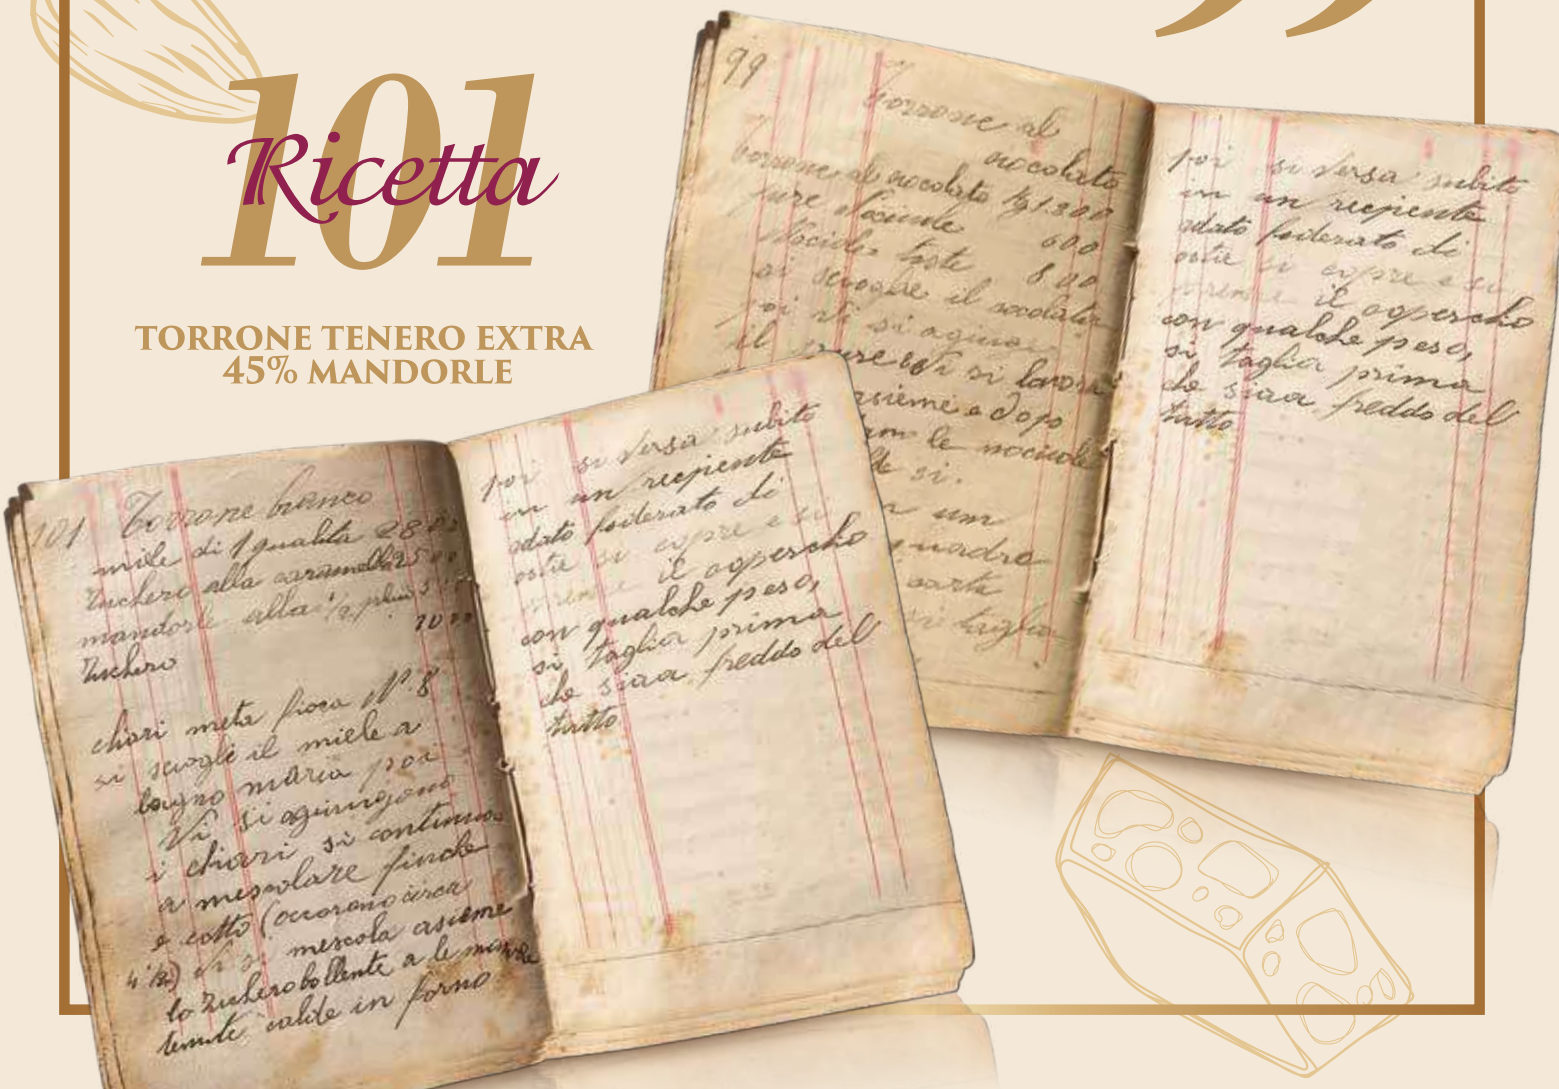 101
Ricetta
TORRONE TENERO EXTRA
45% MANDORLE
99
Torrone al
cioccolato
torrone al ciocolato Kg 1.300
pure Nociuole 600
Nociole toste 800
si scioglie il
poi vi si
il pure e vi si lavora
assieme e dopo
le nociuole
si.
un
quadre
carta
si taglia
poi si versa subito
in un recipiente
adato foderato di
ostie si copre e si
preme il copercho
con qualche peso,
si taglia prima
che siaa freddo del
tutto
101 Torrone bianco
miele di 1 qualita 28
Zuchero alla caramella 25
mandorle alla
Zuchero
chiari meta fioca N. 8
si scioglie il miele a
bagno maria poi
Vi si agiungono
i chiari si continua
a mescolare finche
e cotto (occorono circa
4 1/2) Vi si mescola asieme
lo Zuchero bollente a le mandorle
tenute calde in forno
poi si versa subito
in un recipiente
adato foderato di
ostie si copre e si
preme il copercho
con qualche peso,
si taglia prima
che siaa freddo del
tutto